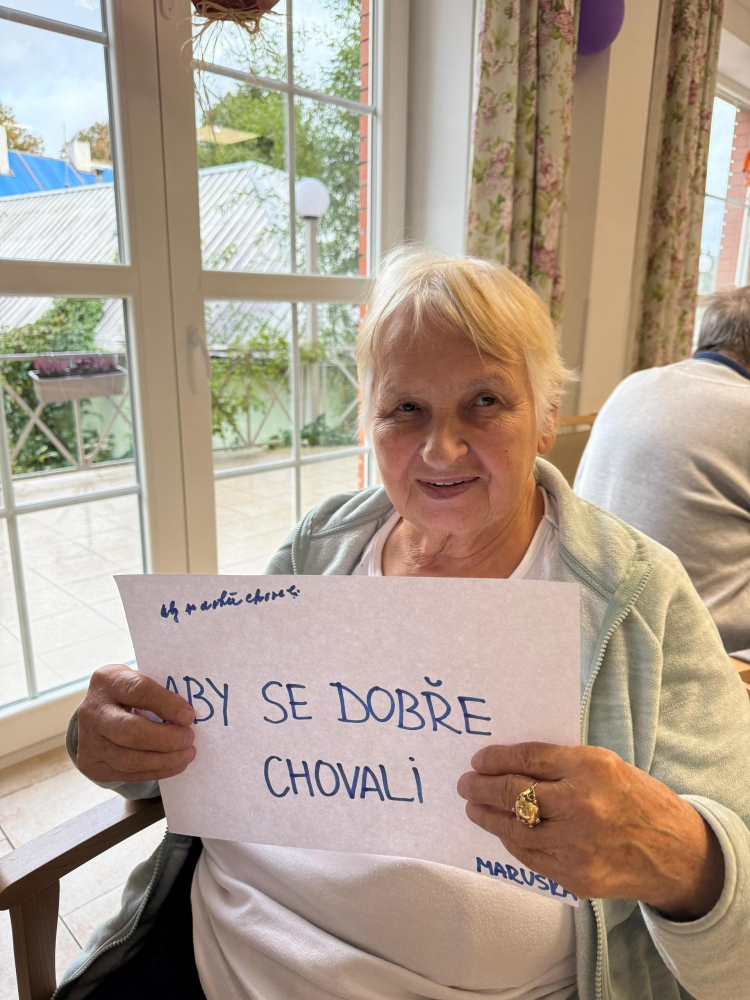 Aby se dobře chovali
ABY SE DOBŘE
CHOVALi
MARUŠKA